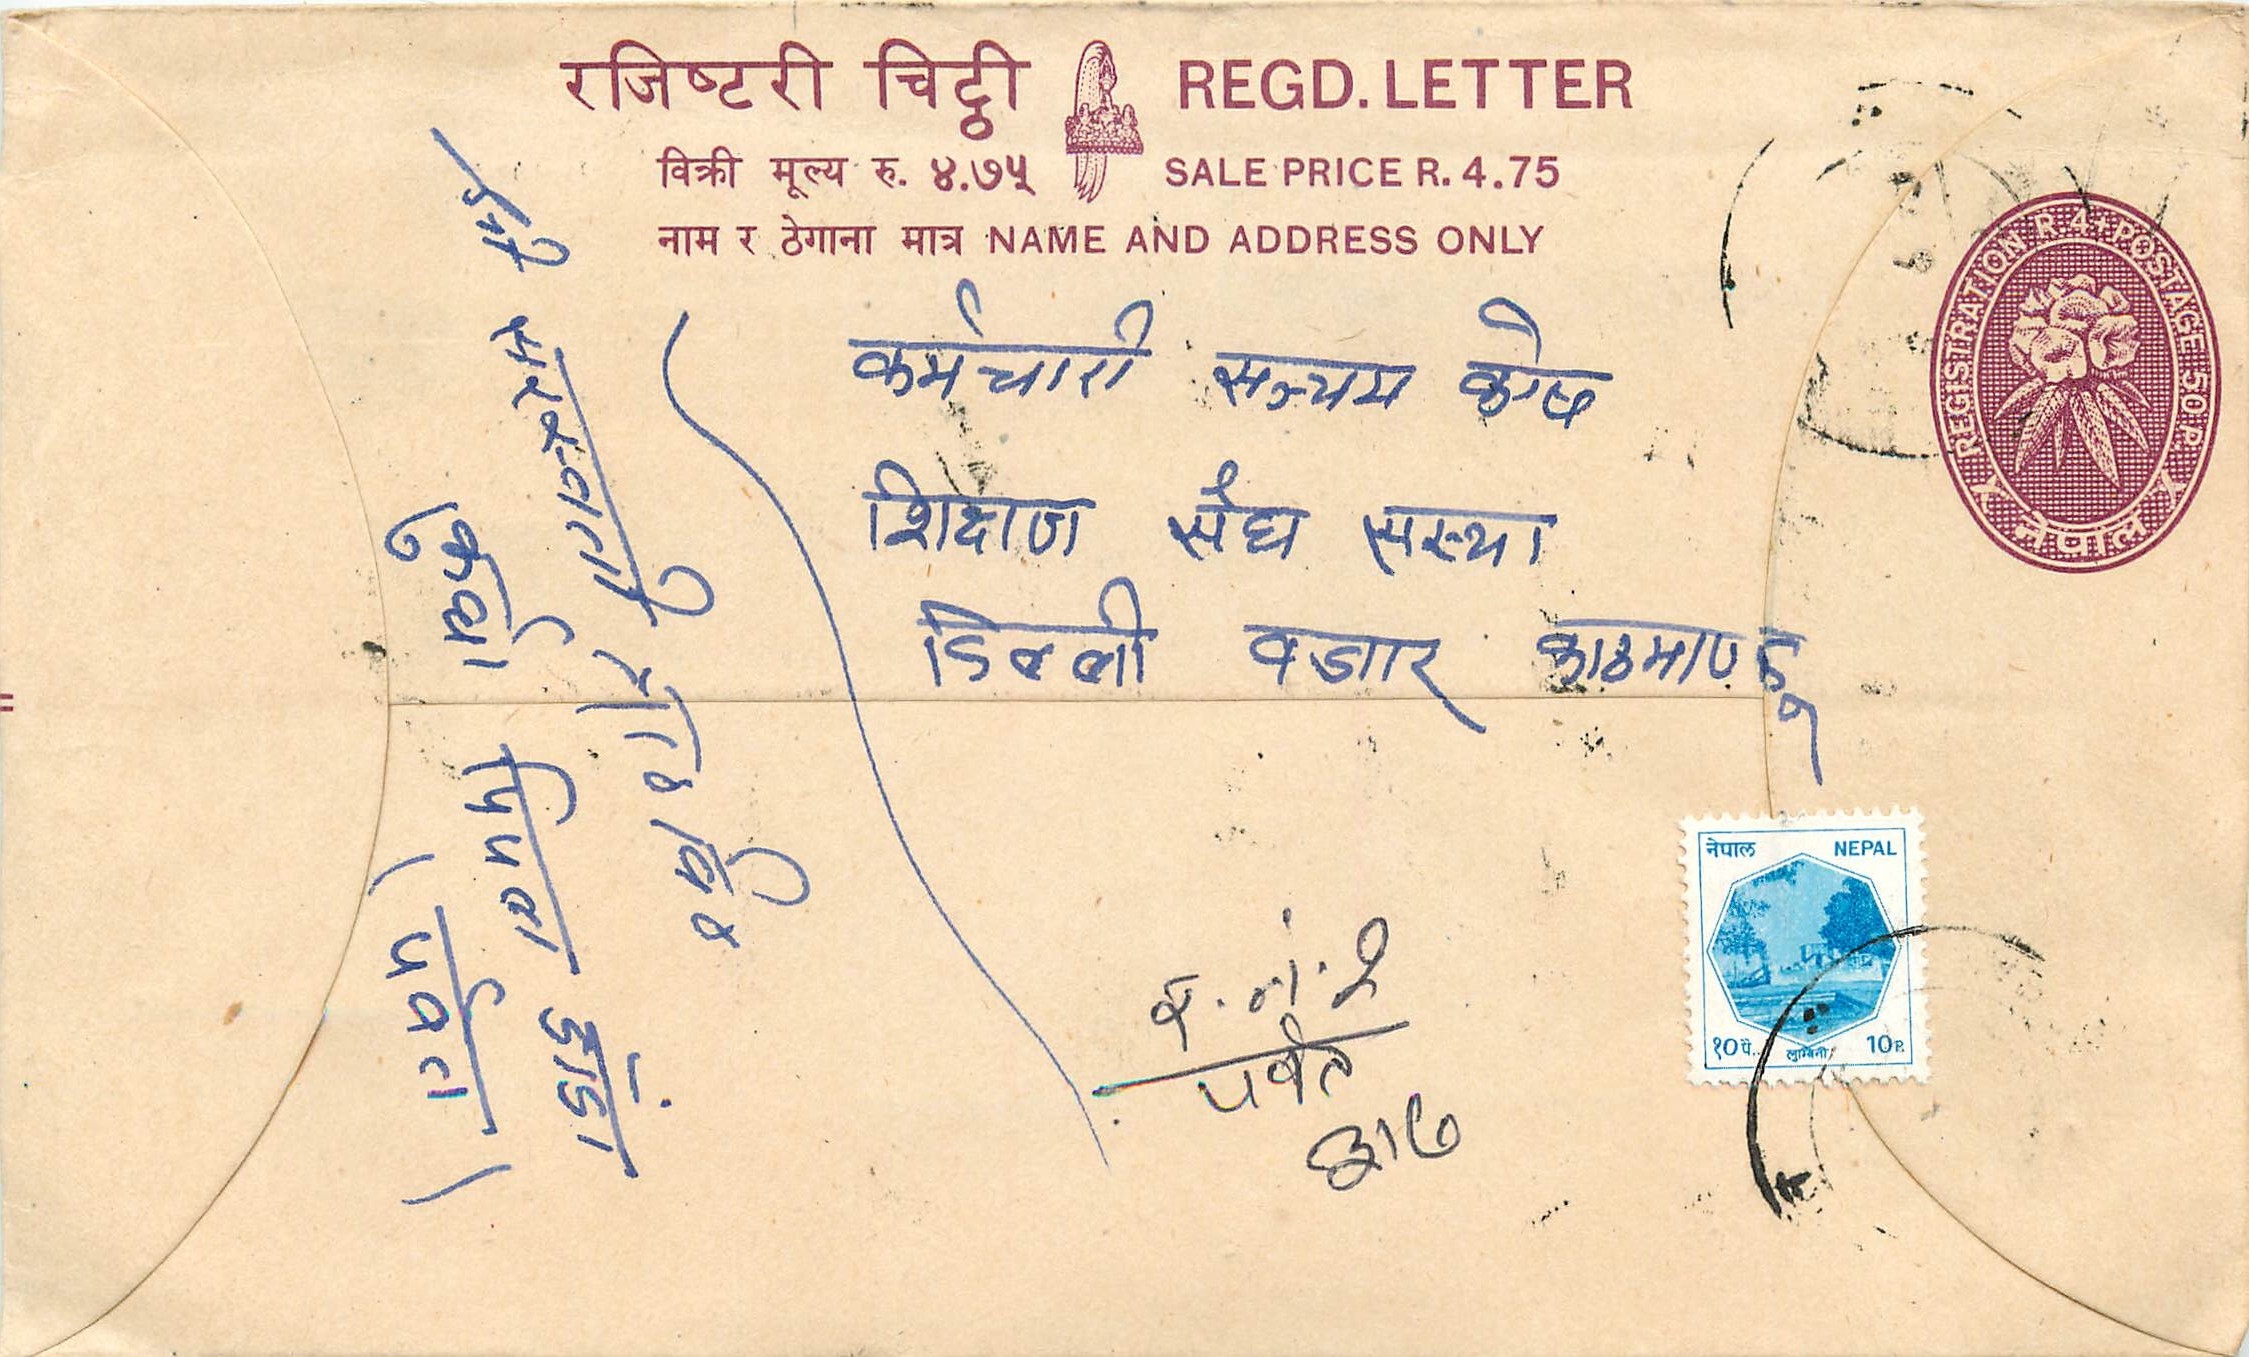 रजिष्टरी चिट्ठी REGD. LETTER
विक्री मूल्य रु. ४.७५ SALE PRICE R. 4.75
नाम र ठेगाना मात्र NAME AND ADDRESS ONLY
REGISTRATION R. 4+POSTAGE 50 P.
नेपाल
कर्मचारी सन्चय कोष
शिक्षण संघ सस्था
डिल्ली वजार काठमाण्डू
श्री सरस्वती मा० वि०
कुर्घा पिपल डाँडा
(पर्वत)
र. नं. २
पर्वत
नेपाल NEPAL
१० पै. लुम्बिनी 10 P.